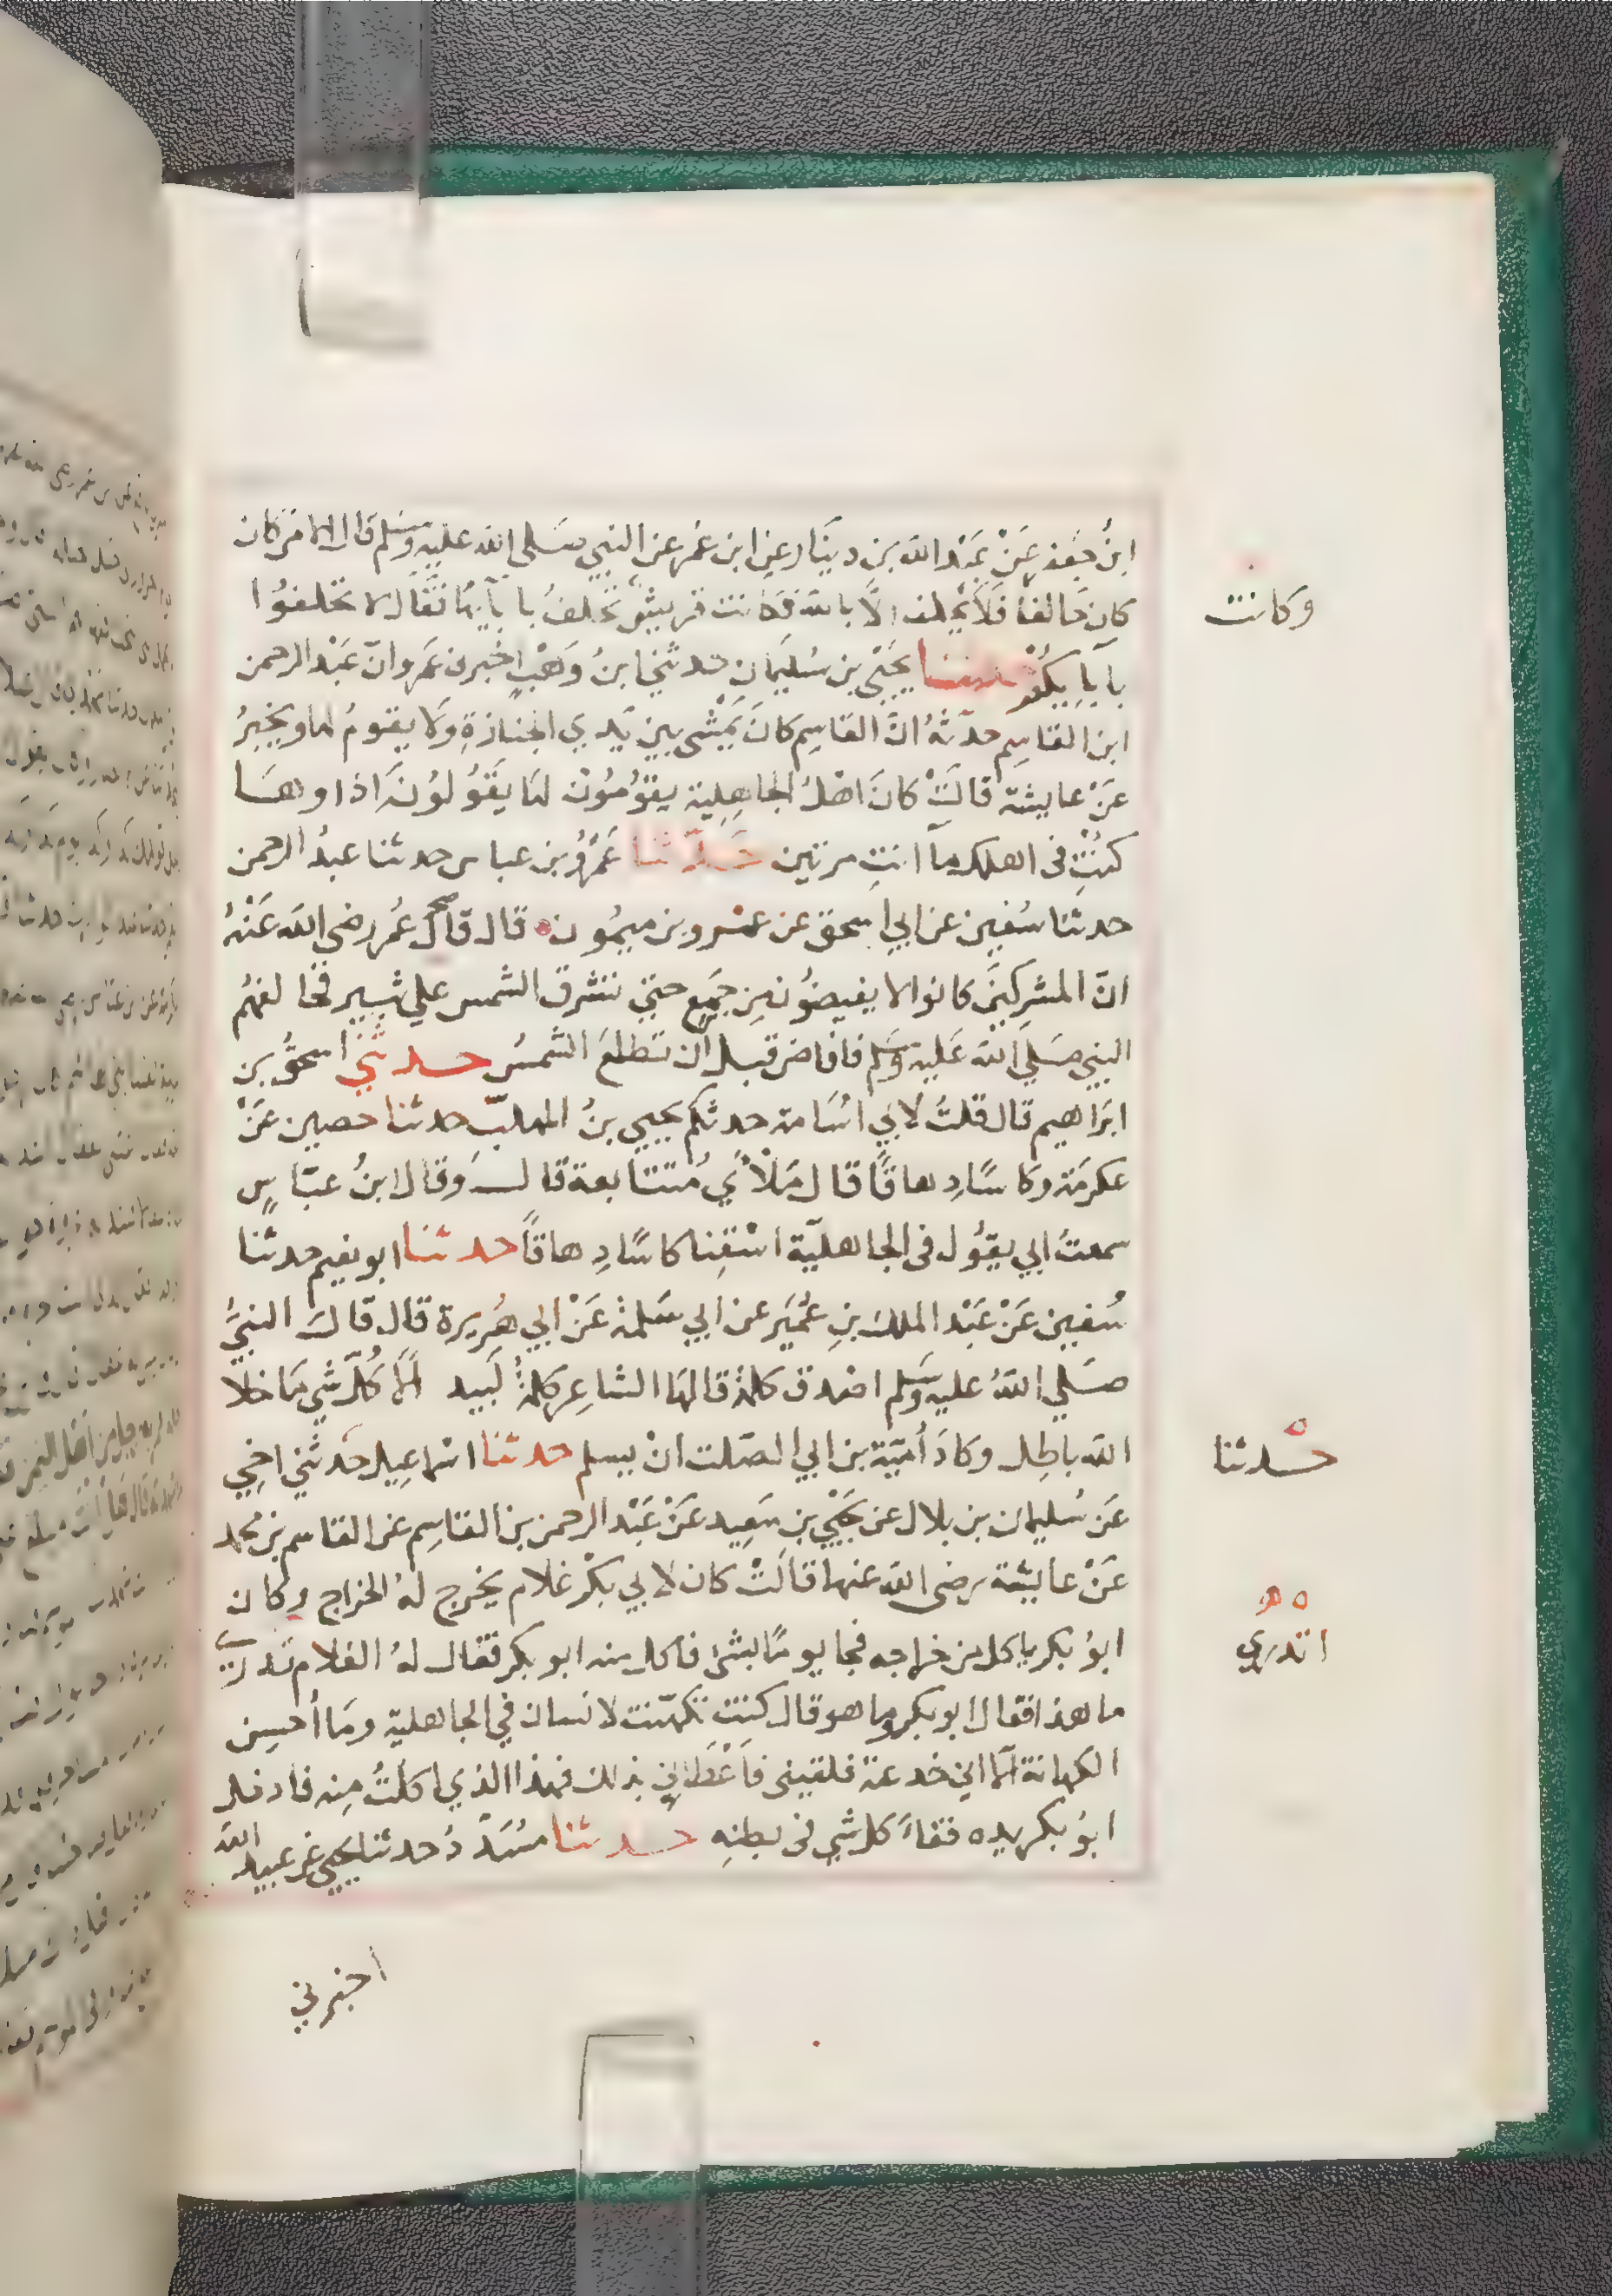 ابنُ جعفر عَنْ عَبْد الله بن دينَار عن ابن عُمر عن النبي صَلى الله عليه وسَلم قال الا من كان
كان حَالفا فَلَا يحلف الَّا بالله فكانت قريشٌ تحلفُ بآبآيها فقَال لا تحلفوُا
بآبايِكُمْ حدثنا يحَيْى بن سُليَمان حدثني ابنُ وَهْبٍ اخبرن عَمروانّ عَبْد الرحمن
ابن القاسِم حدّثهُ انَّ القاسِم كانَ يَمْشى بين يَدي الجنازةِ وَلَا يقومُ لها ويخبِرُ
عَنْ عايشة قالَتْ كانَ اهْلُ الجاهِلِية يقوُمُوُن لهَا يَقوُلوُنَ اذا اوهَا
كُنْتِ فى اهلك مآ انتِ مرتين حَدّثنا عَمْرُو بن عباس حدثنا عبدُ الرحمن
حدثنا سُفين عن ابي اسحق عن عمْرو بن ميمُون قال قَال عُمر رضى الله عَنْهُ
انّ المشركِينَ كانوا لا يفيضوُن مِن جَمعٍ حتي تشرق الشمس علي ثبير فخالفهُم
النبي صَلي الله عَليه وَسَلم فافاض قبل ان تطلعَ الشمسُ حدثني اسحقُ بن
ابرَاهيم قال قلتُ لابي اسَامة حدثكم يحيي بنُ المهلبّ حدثنا حصين عَنْ
عكرمَة وكاسًا دِهاقًا قال مَلْأَي مُتتابعة قال وَقال ابنُ عبّاسٍ
سمعتُ ابي يقوُل فى الجاهليّة اسْقِنا كاسًا دِهاقًا حدثنا ابو نعيم حدثنا
سُفين عَنْ عَبْد الملك بنِ عُمَيَر عن ابي سَلمة عَنْ ابي هُريرة قال قال النبيُّ
صَلي اللهُ عليه وسَلم اصْدق كلمة قالها الشاعِر كلمةُ لَبيد الا كُلّ شي مَا خلا
الله باطِل وكادَ أُميّة بن ابي الصَلت انْ يسلم حدثنا اسْماعِيل حَدثني اخِي
عَن سُليمان بن بلال عن يحَيْي بن سَعِيد عَنْ عَبْد الرحمن بن القاسِم عن القاسم بن محمد
عَنْ عايشة رضى الله عنها قالَتْ كان لابي بكْر غلام يخرج لهُ الخراج وكان
ابوُ بكر ياكل من خراجه فجا يومًا بشئ فاكل منه ابو بكر فقال لهُ الغلام تدري
ما هذا فقال ابو بكر وما هو قال كنت تكهّنت لانسان في الجاهليّة ومَا أُحسِن
الكهانة الّا اني خدعته فلقيني فاَعْطاني بذلك فهذا الذي اكلتُ مِنه فادخل
ابوُ بكر يده فقاءَ كل شي فى بطنِه حدثنا مسُدَّدُ حدثنا يحيي عن عبيد الله
اخبرني
وكانت
حدثنا
ه
ه هر
اتدري